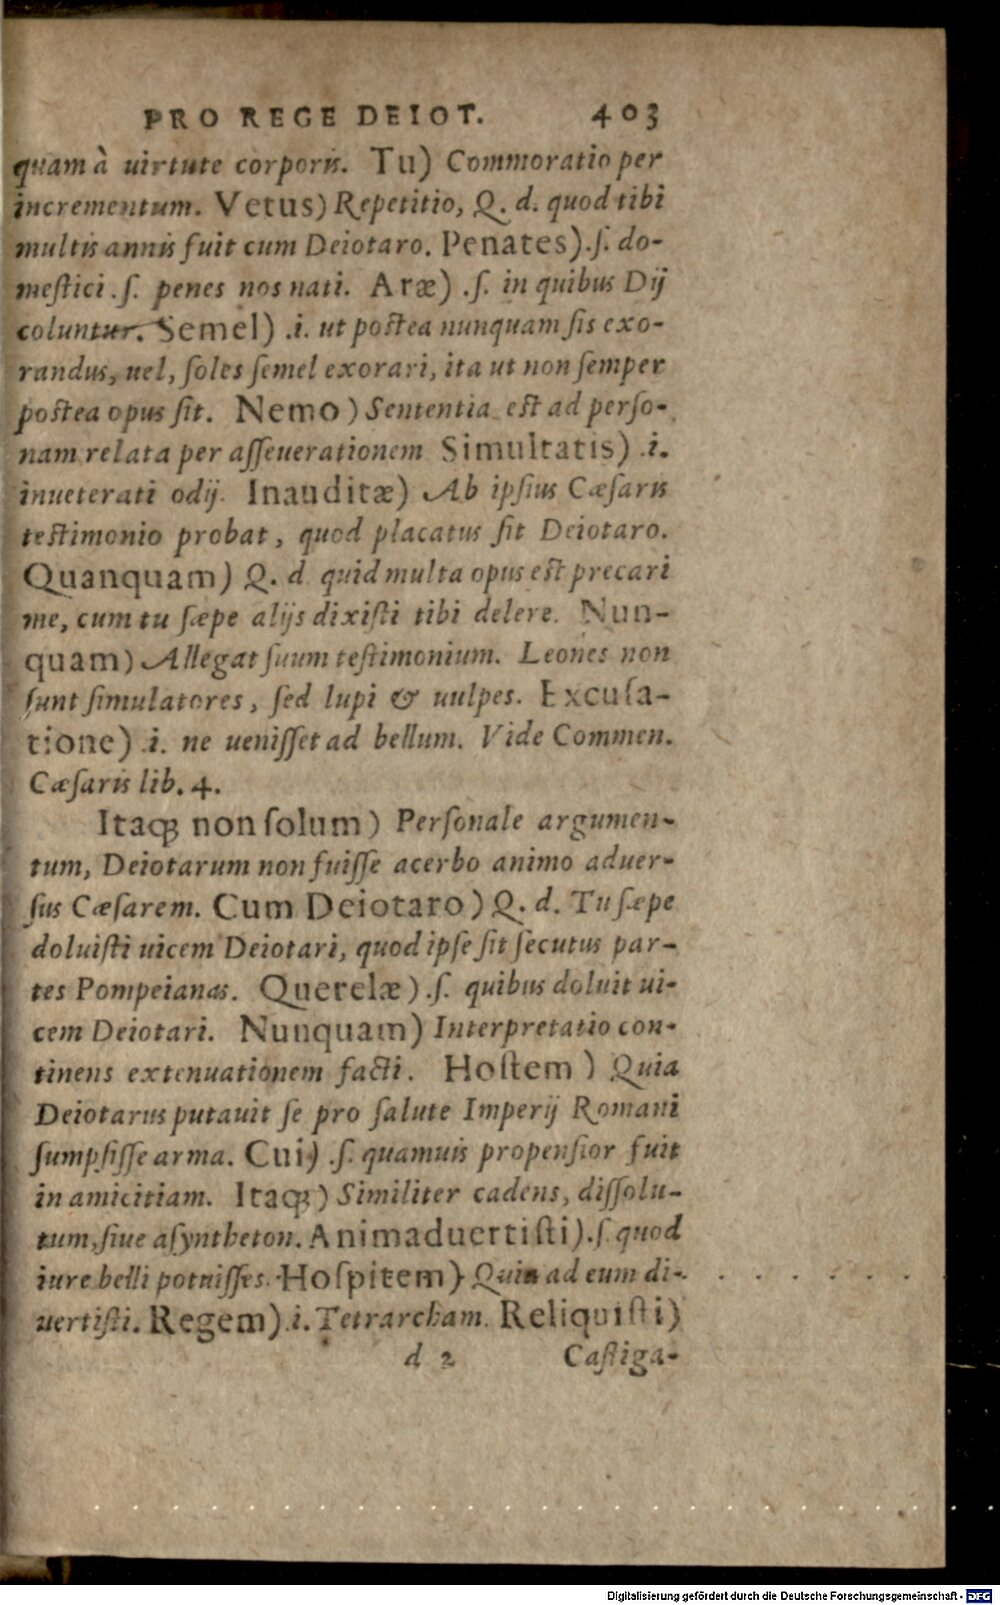 PRO REGE DEIOT. 403
quam à uirtute corporis. Tu) Commoratio per
incrementum. Vetus) Repetitio, Q. d. quod tibi
multis annis fuit cum Deiotaro. Penates) .ſ. do-
meſtici .ſ. penes nos nati. Aræ) .ſ. in quibus Dij
coluntur. Semel) .i. ut poſtea nunquam ſis exo-
randus, uel, ſoles ſemel exorari, ita ut non ſemper
poſtea opus ſit. Nemo) Sententia eſt ad perſo-
nam relata per aſſeuerationem Simultatis) .i.
inueterati odij. Inauditæ) Ab ipſius Cæſaris
teſtimonio probat, quod placatus ſit Deiotaro.
Quanquam) Q. d. quid multa opus eſt precari
me, cum tu ſæpe alijs dixiſti tibi delere. Nun-
quam) Allegat ſuum teſtimonium. Leones non
ſunt ſimulatores, ſed lupi & uulpes. Excuſa-
tione) .i. ne ueniſſet ad bellum. Vide Commen.
Cæſaris lib. 4.
Itaq; non ſolum) Perſonale argumen-
tum, Deiotarum non fuiſſe acerbo animo aduer-
ſus Cæſarem. Cum Deiotaro) Q. d. Tu ſæpe
doluiſti uicem Deiotari, quod ipſe ſit ſecutus par-
tes Pompeianas. Querelæ) .ſ. quibus doluit ui-
cem Deiotari. Nunquam) Interpretatio con-
tinens extenuationem facti. Hoſtem) Quia
Deiotarus putauit ſe pro ſalute Imperij Romani
ſumpſiſſe arma. Cui) .ſ. quamuis propenſior fuit
in amicitiam. Itaq;) Similiter cadens, diſſolu-
tum, ſiue aſyntheton. Animaduertiſti) .ſ. quod
iure belli potuiſſes. Hoſpitem) Quia ad eum di-
uertiſti. Regem) .i. Tetrarcham. Reliquiſti)
d 2 Caſtiga-
Digitalisierung gefördert durch die Deutsche Forschungsgemeinschaft - DFG